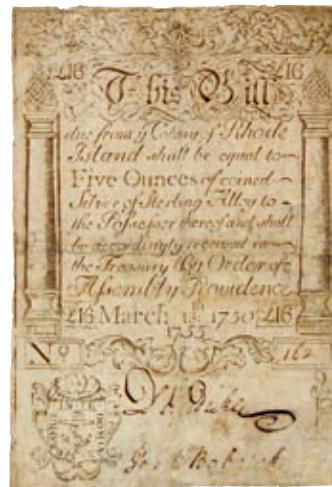 £16 £16
This Bill
due from ye Colony of Rhode
Island shall be equal to
Five Ounces of coined
Silver of Sterling Alloy to
the Possessor thereof and shall
be accordingly received in
the Treasury By Order of
Assembly Providence
£16 March 18 1750 £16
1755
No 162